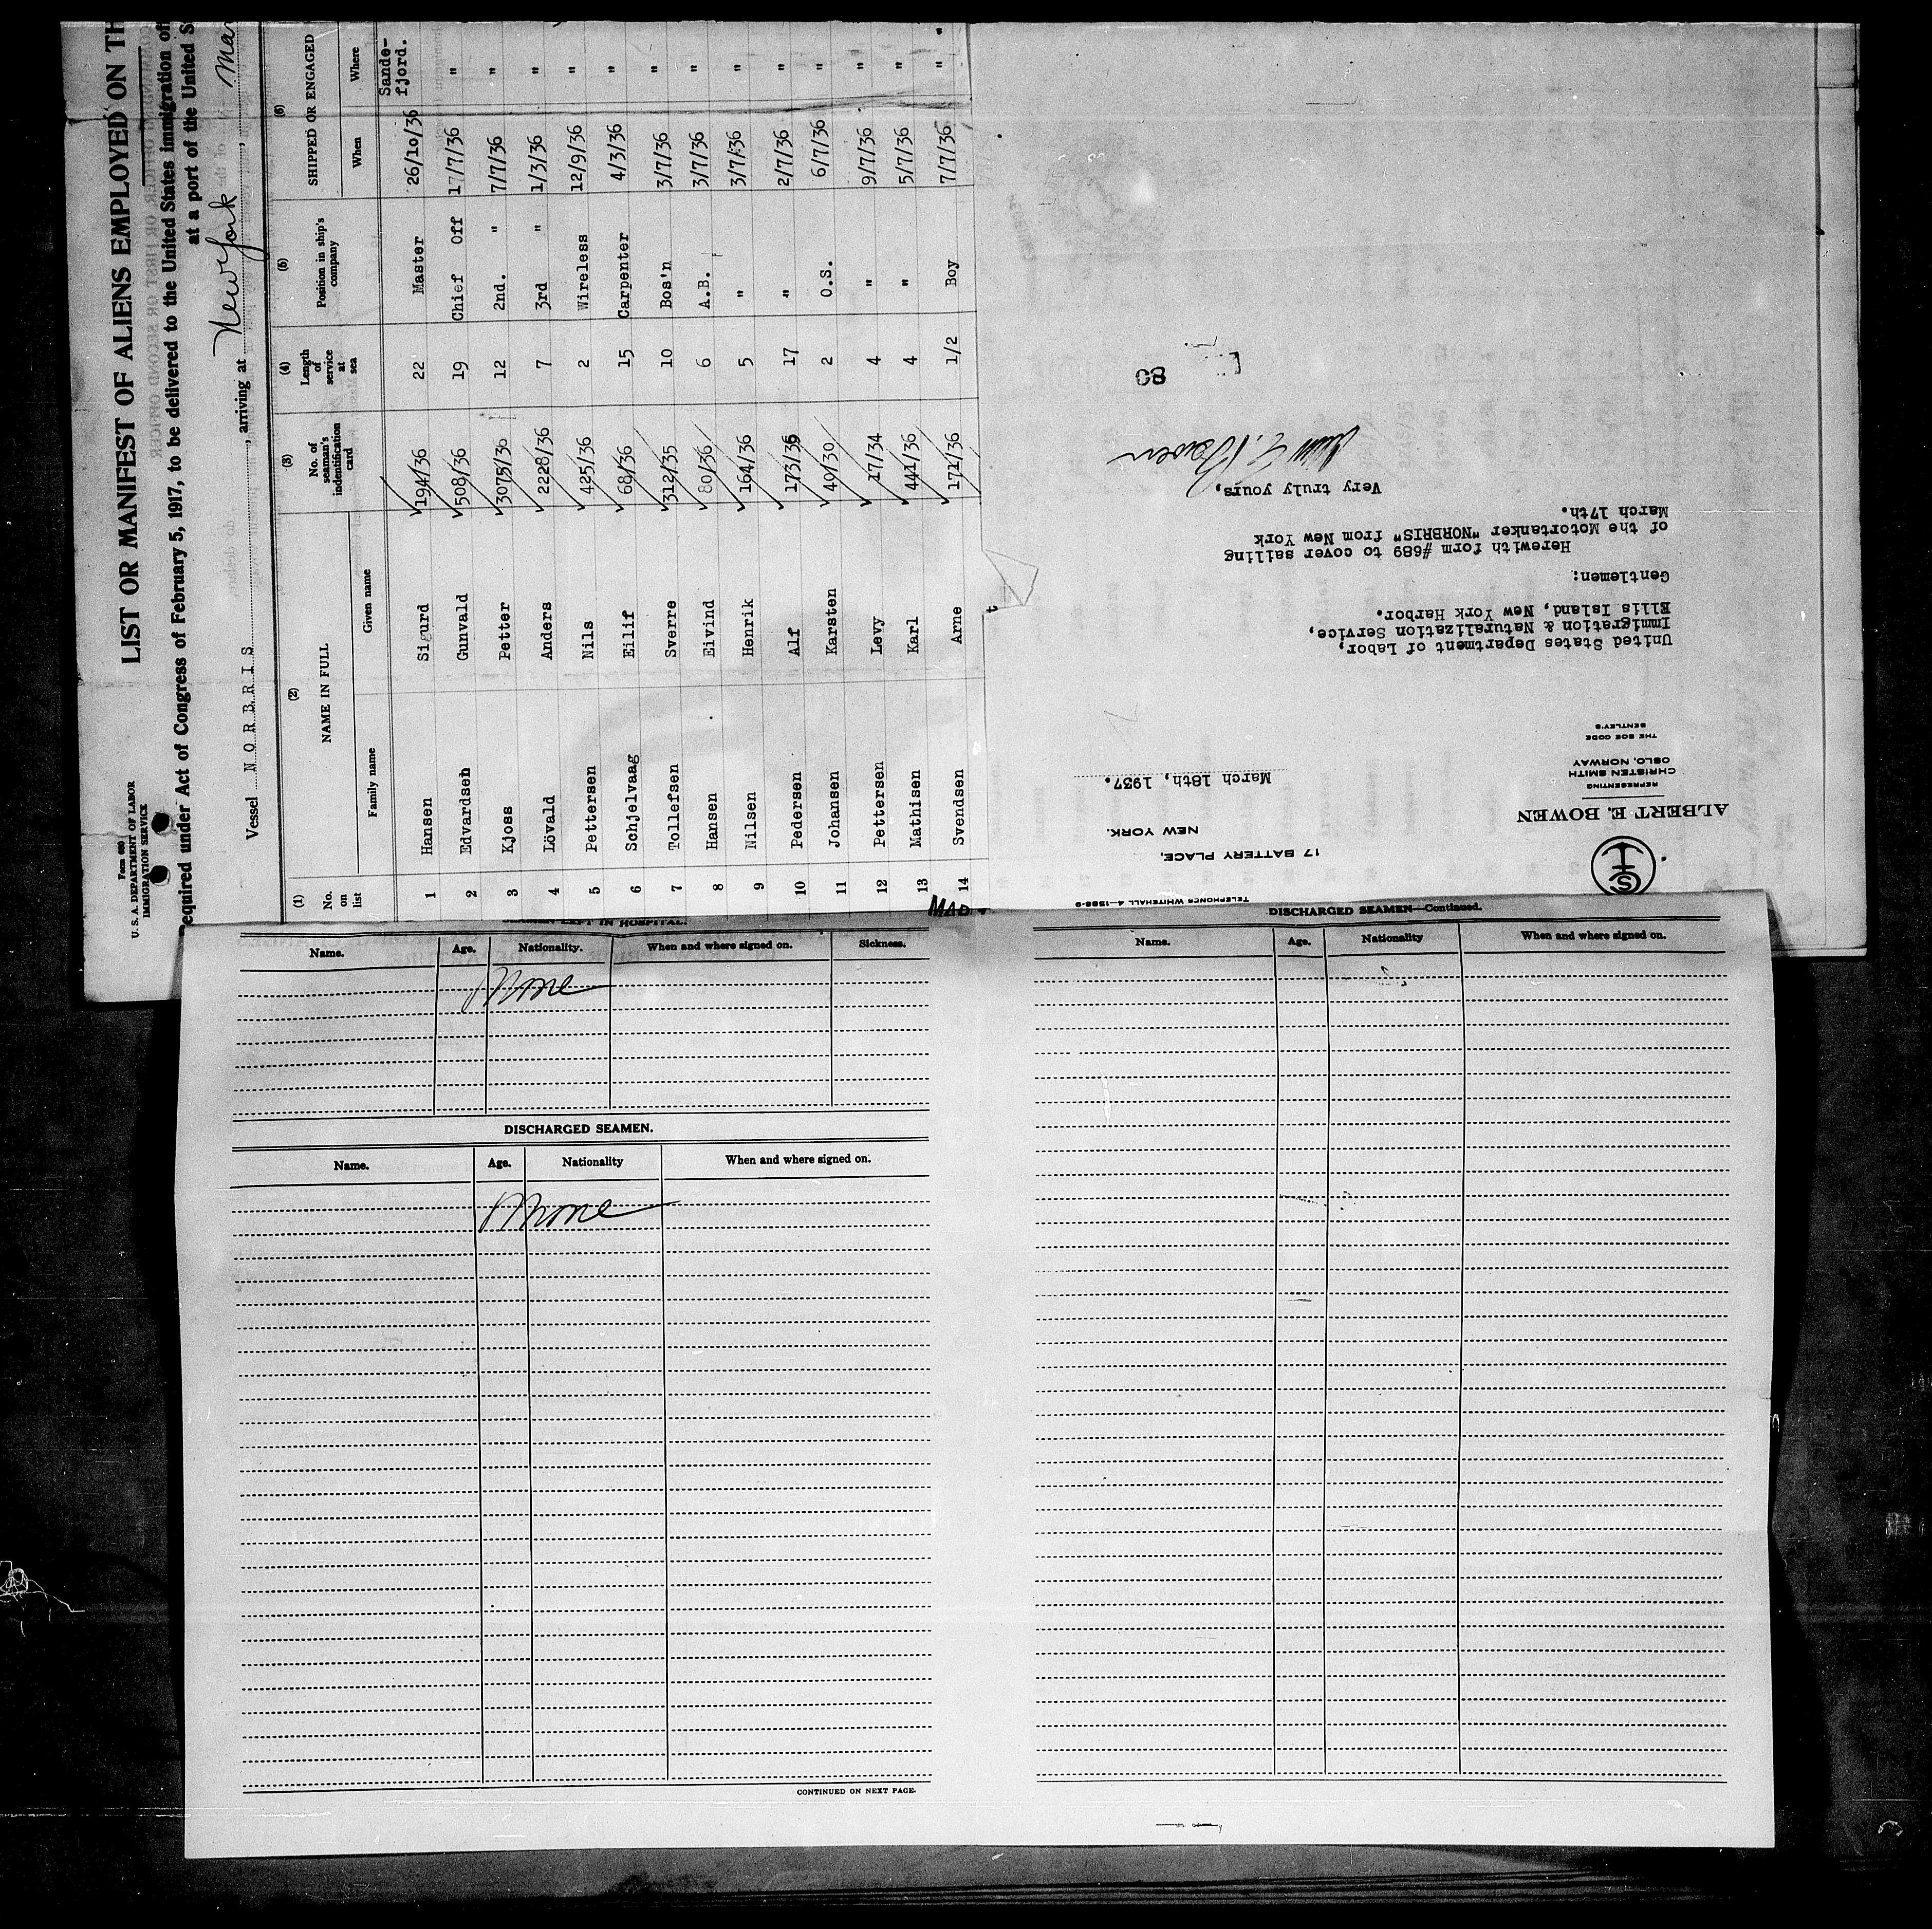 Form 680
U. S. A. DEPARTMENT OF LABOR
IMMIGRATION SERVICE
LIST OR MANIFEST OF ALIENS EMPLOYED ON TH
equired under Act of Congress of February 5, 1917, to be delivered to the United States immigration of
at a port of the United S
Vessel NORBRIS, arriving at New York, Ma
(1) (2) (3) (4) (5) (6)
No. on list NAME IN FULL No. of seaman's indentification card Length of service at sea Position in ship's company SHIPPED OR ENGAGED
Family name Given name When Where
1 Hansen Sigurd 194/36 22 Master 26/10/36 Sande-fjord.
2 Edvardsen Gunvald 508/36 19 Chief Off 17/7/36 "
3 Kjoss Petter 3075/30 12 2nd. " 7/7/36 "
4 Lövald Anders 2228/36 7 3rd " 1/3/36 "
5 Pettersen Nils 425/36 2 Wireless 12/9/36 "
6 Schjelvaag Eilif 68/36 15 Carpenter 4/3/36 "
7 Tollefsen Sverre 312/35 10 Bos'n 3/7/36 "
8 Hansen Eivind 80/36 6 A.B. 3/7/36 "
9 Nilsen Henrik 164/36 5 " 3/7/36 "
10 Pedersen Alf 173/36 17 " 2/7/36 "
11 Johansen Karsten 40/30 2 O.S. 6/7/36 "
12 Pettersen Levy 17/34 4 " 9/7/36 "
13 Mathisen Karl 441/36 4 " 5/7/36 "
14 Svendsen Arne 171/36 1/2 Boy 7/7/36 "
TELEPHONES WHITEHALL 4-1588-9
17 BATTERY PLACE,
NEW YORK.
ALBERT E. BOWEN
REPRESENTING
CHRISTEN SMITH
OSLO, NORWAY
THE BOE CODE
BENTLEY'S
March 18th, 1937.
United States Department of Labor,
Immigration & Naturalization Service,
Ellis Island, New York Harbor.
Gentlemen:
Herewith form #689 to cover sailing
of the Motortanker "NORBRIS" from New York
March 17th.
Very truly yours,
80
LEFT IN HOSPITAL.
Name. Age. Nationality. When and where signed on. Sickness.
None
DISCHARGED SEAMEN.
Name. Age. Nationality When and where signed on.
None
CONTINUED ON NEXT PAGE.
DISCHARGED SEAMEN—Continued.
Name. Age. Nationality When and where signed on.